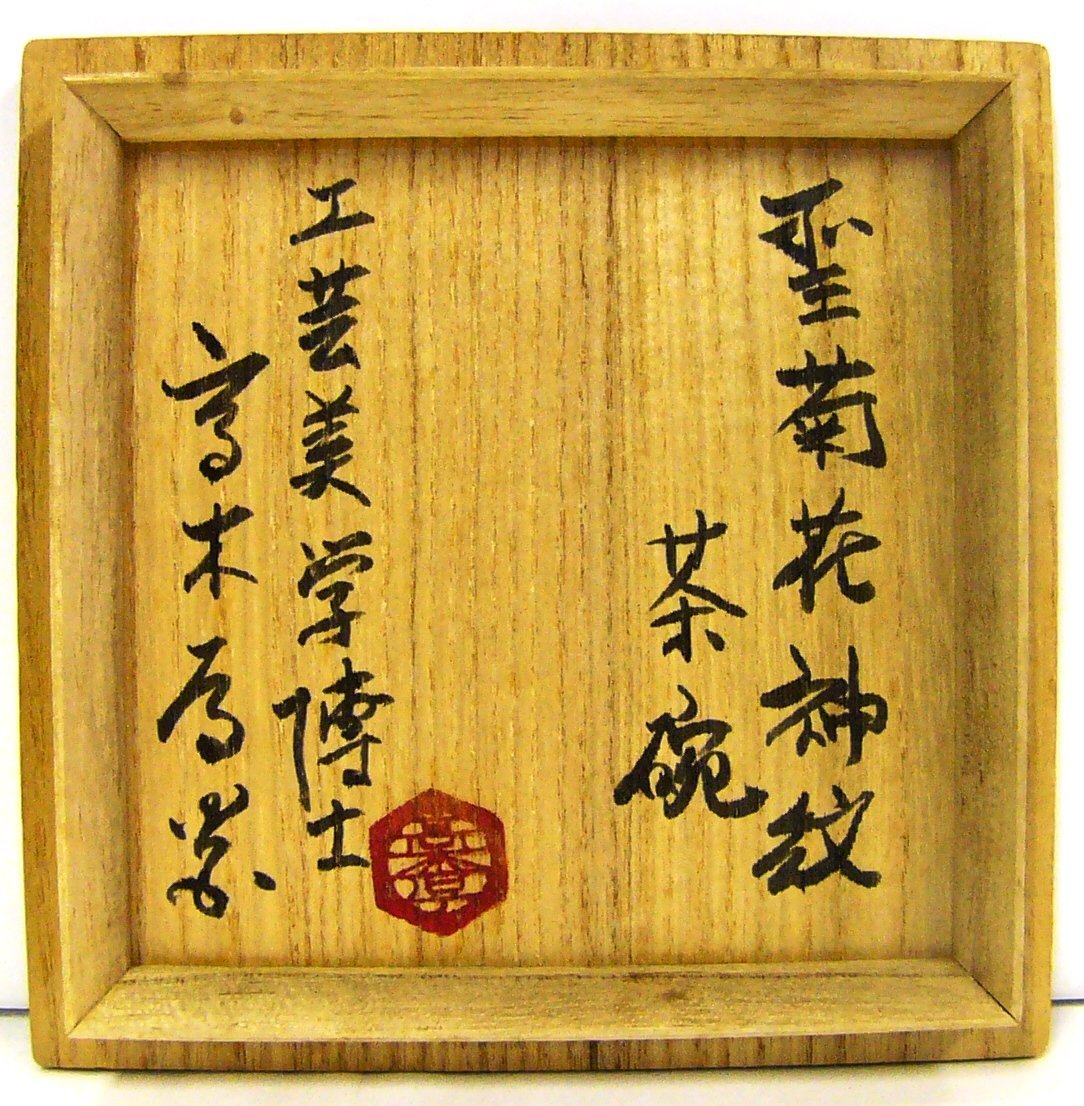 聖菊花神紋
茶碗
工芸美学博士
高木